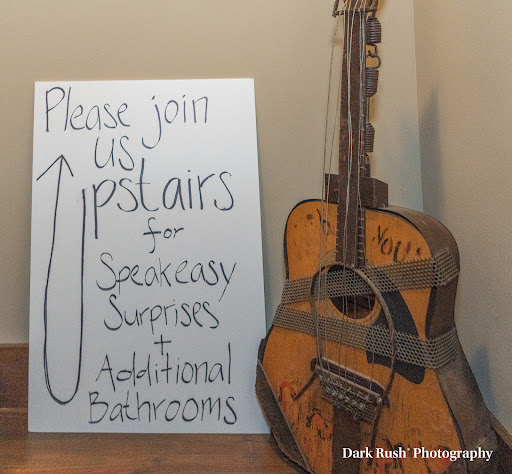 Please join
us
Upstairs
for
Speakeasy
Surprises
+
Additional
Bathrooms
YOU
Dark Rush Photography